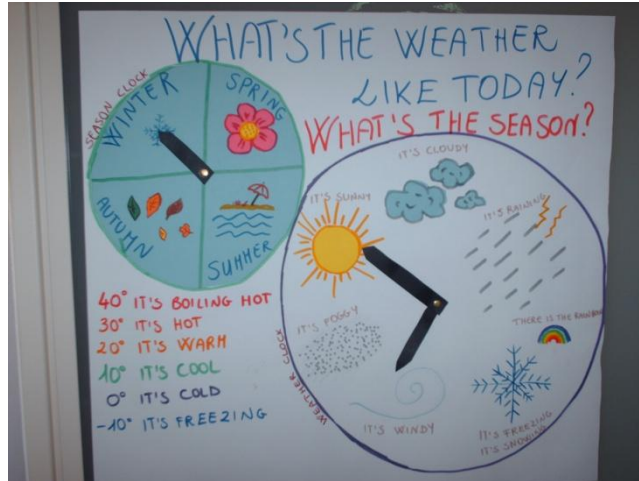 WHAT'S THE WEATHER
LIKE TODAY?
WHAT'S THE SEASON?
SEASON CLOCK
WINTER
SPRING
AUTUMN
SUMMER
40° IT'S BOILING HOT
30° IT'S HOT
20° IT'S WARM
10° IT'S COOL
0° IT'S COLD
-10° IT'S FREEZING
WEATHER CLOCK
IT'S CLOUDY
IT'S SUNNY
IT'S RAINING
THERE IS THE RAINBOW
IT'S FOGGY
IT'S WINDY
IT'S FREEZING
IT'S SNOWING